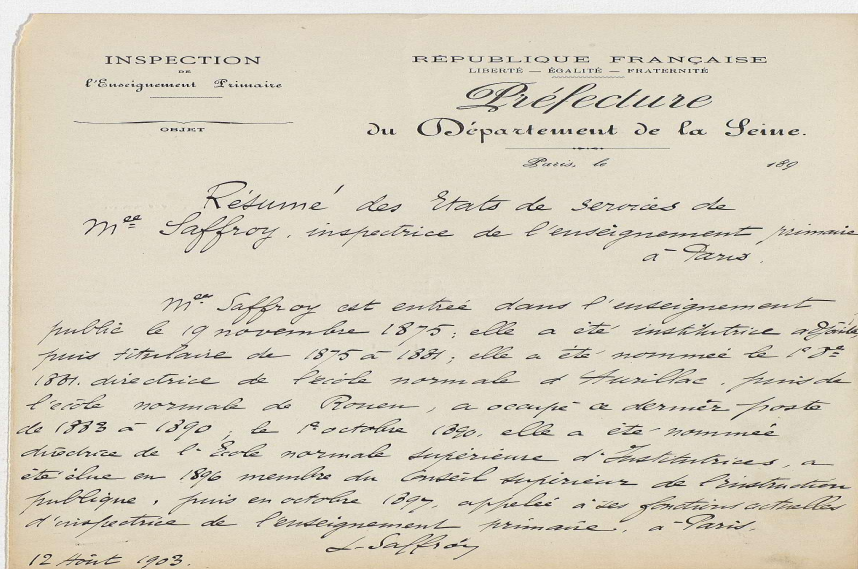 INSPECTION
DE
l'Enseignement Primaire
OBJET
RÉPUBLIQUE FRANÇAISE
LIBERTÉ — ÉGALITÉ — FRATERNITÉ
Préfecture
du Département de la Seine.
Paris, le 189
Résumé des Etats de services de
Mlle Saffroy, inspectrice de l'enseignement primaire
à Paris.
Mlle Saffroy est entrée dans l'enseignement
public le 19 novembre 1875; elle a été institutrice adjointe,
puis titulaire de 1875 à 1881; elle a été nommée le 1er 8re
1881. directrice de l'école normale d'Aurillac, puis de
l'école normale de Rouen, a occupé ce dernier poste
de 1883 à 1890, le 1er octobre 1890, elle a été nommée
directrice de l'Ecole normale supérieure d'Institutrices, a
été élue en 1896 membre du Conseil supérieur de l'instruction
publique, puis en octobre 1897, appelée à ses fonctions actuelles
d'inspectrice de l'enseignement primaire, à Paris.
L. Saffroy
12 Août 1903.